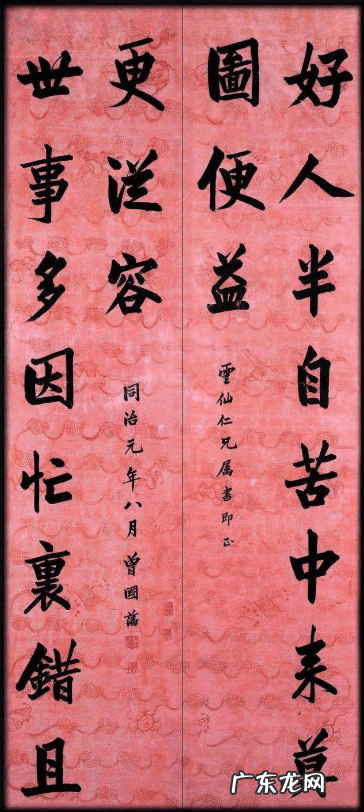 好人半自苦中来莫
圖便益
雲仙仁兄属書即正
世事多因忙裏錯且
更從容
同治元年八月曾國藩
广东龙网